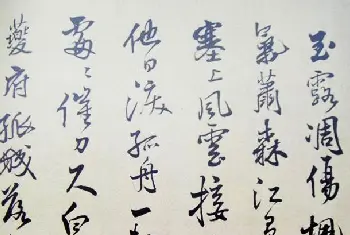 玉露凋傷楓
氣蕭森江
塞上風雲接
他日淚孤舟一
處〻催刀尺白
夔府孤城落